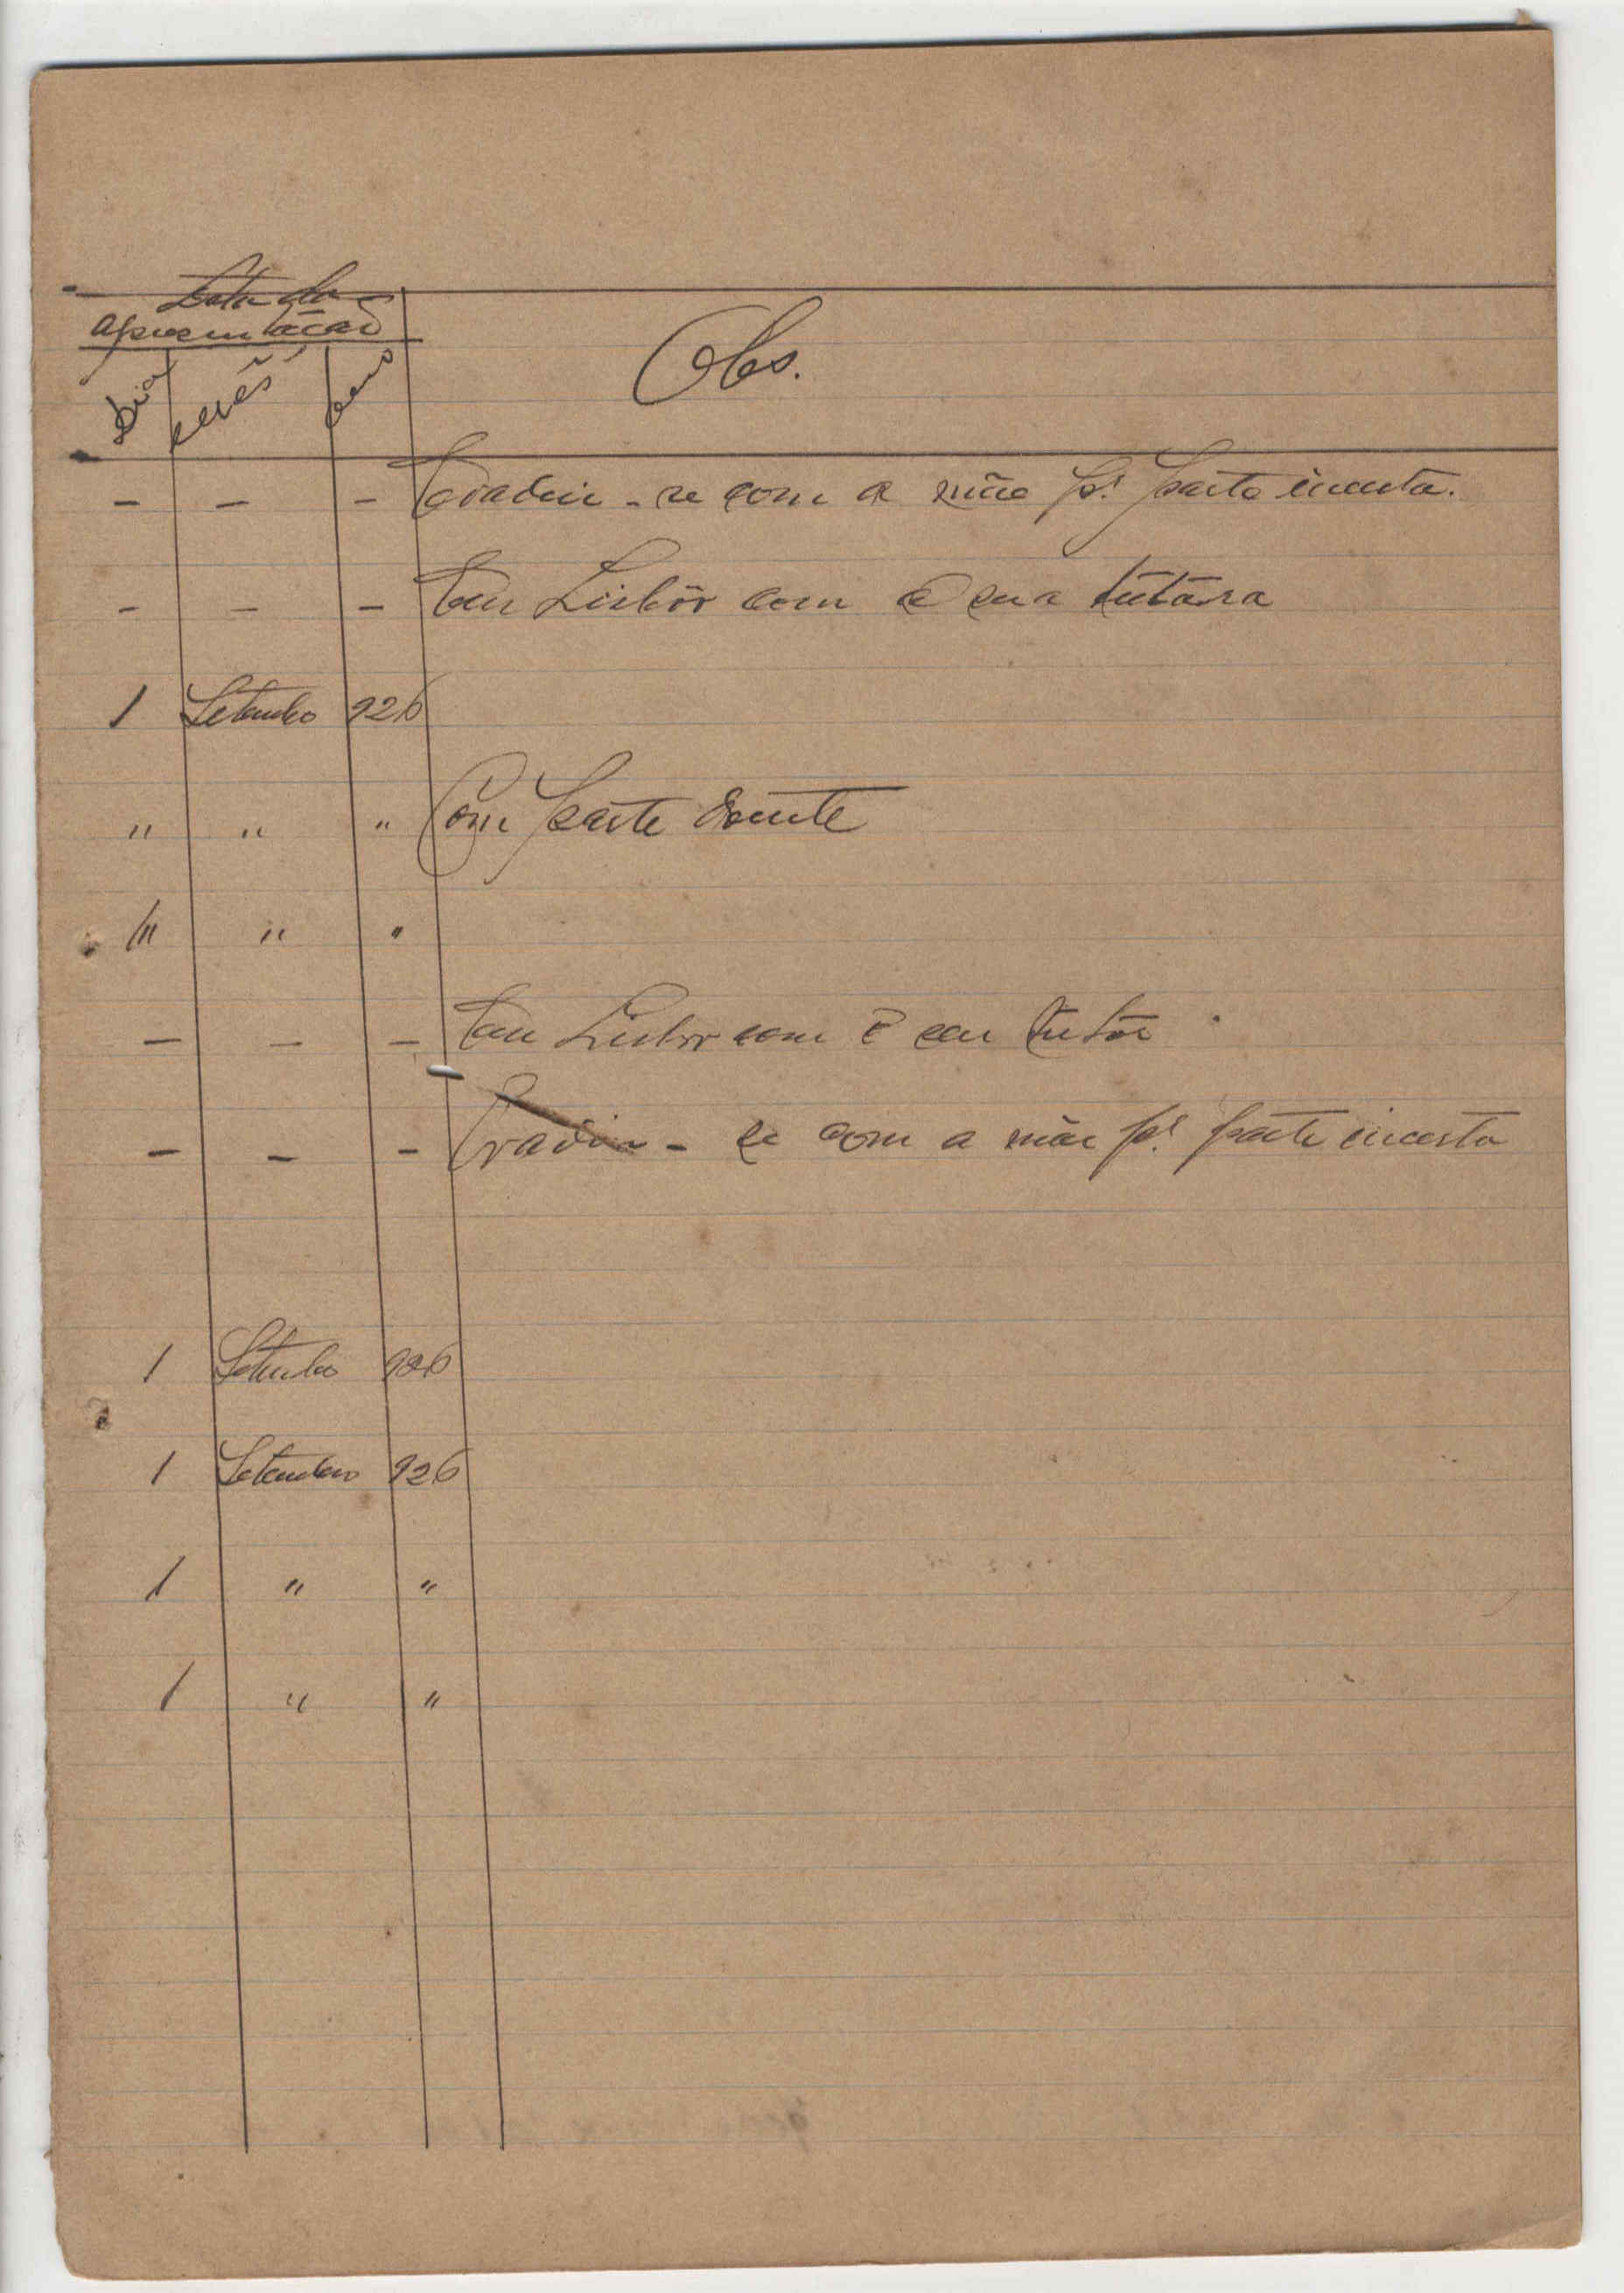 Data da
apresentação
Dia mês ano
Obs.
- - - Evadiu-se com a mãe pª parte incerta.
- - - Em Lisbôr com a sua tutôra
1 Setembro 926
" " " Com parte doente
" " "
- - - Em Lisbôr com o seu tutôr
- - - Evadiu-se com a mãe pª parte incerta
1 Setembro 926
1 Setembro 926
1 " "
1 " "